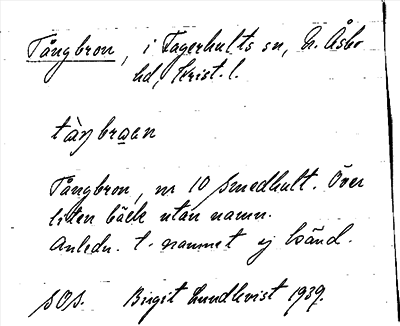 Tångbron, i Fagerhults sn, N. Åsbo
hd, Krist. l.
tàŋbroen
Tångbron, nr 10 Smedhult. Över
liten bäck utan namn.
Anledn. t. namnet ej känd.
SOS. Birgit Lundkvist 1939.